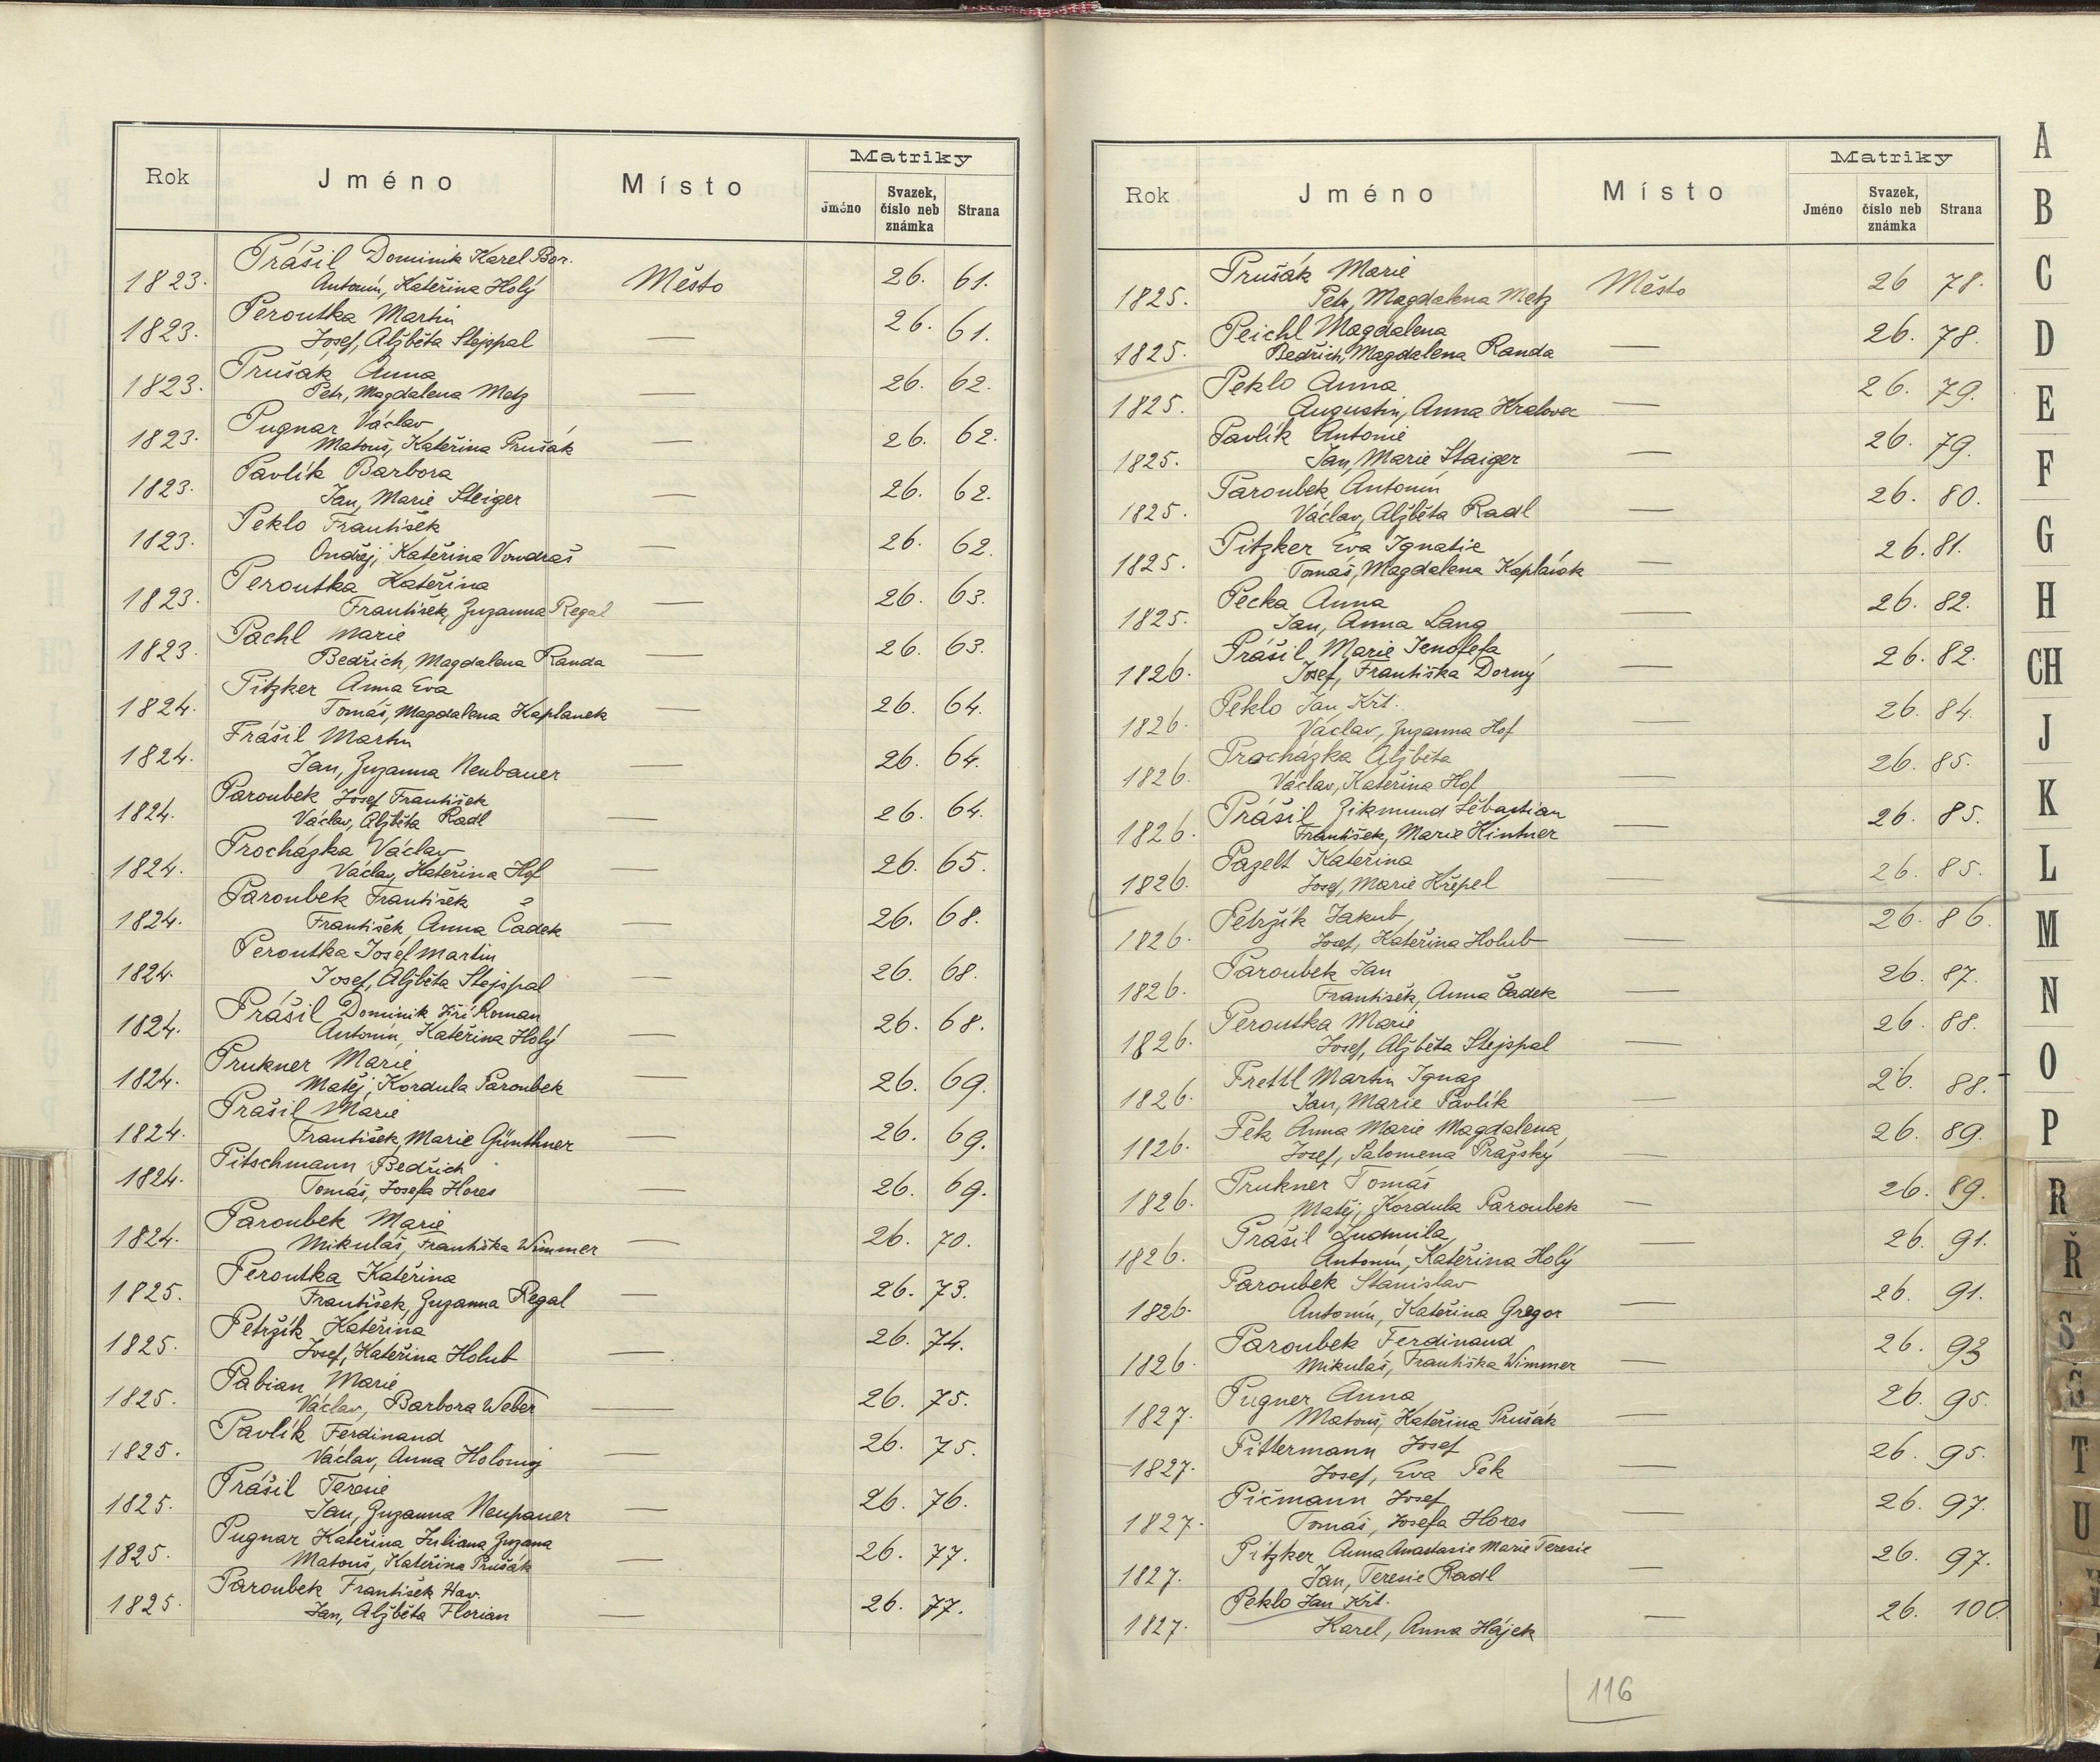 Rok Jméno Místo Matriky
Jméno Svazek, číslo neb známka Strana
Prášil Dominik Karel Bor.
1823. Antonín, Kateřina Holý Město 26. 61.
Peroutka Martin
1823. Josef, Alžběta Stejspal — 26. 61.
Prušák Anna
1823. Petr, Magdalena Metz — 26. 62.
Pugnar Václav
1823. Matouš, Kateřina Prušák — 26. 62.
Pavlík Barbora
1823. Jan, Marie Steiger — 26. 62.
Peklo František
1823. Ondřej, Kateřina Vondraš — 26. 62.
Peroutka Kateřina
1823. František, Zuzanna Regal — 26. 63.
Pachl Marie
1823. Bedřich, Magdalena Randa — 26. 63.
Pitzker Anna Eva
1824. Tomáš, Magdalena Kaplanek — 26. 64.
Prášil Martin
1824. Jan, Zuzanna Neubauer — 26. 64.
Paroubek Josef František
1824. Václav, Alžběta Radl — 26. 64.
Procházka Václav
1824. Václav, Kateřina Hof — 26. 65.
Paroubek František
1824. František, Anna Čadek — 26. 68.
Peroutka Josef Martin
1824. Josef, Alžběta Stejspal — 26. 68.
Prášil Dominik Jiří Roman
1824. Antonín, Kateřina Holý — 26. 68.
Prukner Marie
1824. Matěj, Kordula Paroubek — 26. 69.
Prašil Marie
1824. František, Marie Günthner — 26. 69.
Pitschmann Bedřich
1824. Tomáš, Josefa Hores — 26. 69.
Paroubek Marie
1824. Mikuláš, Františka Wimmer — 26. 70.
Peroutka Kateřina
1825. František, Zuzanna Regal — 26. 73.
Petržík Kateřina
1825. Josef, Kateřina Holub — 26. 74.
Pabian Marie
1825. Václav, Barbora Weber — 26. 75.
Pavlík Ferdinand
1825. Václav, Anna Holomý — 26. 75.
Prášil Teresie
1825. Jan, Zuzanna Neupauer — 26. 76.
Pugnar Kateřina Juliana Zuzana
1825. Matouš, Kateřina Prušák — 26. 77.
Paroubek František Hav.
1825. Jan, Alžběta Florian — 26. 77.
Rok Jméno Místo Matriky
Jméno Svazek, číslo neb známka Strana
Prušák Marie
1825. Petr, Magdalena Metz Město 26 78.
Peichl Magdalena
1825. Bedřich, Magdalena Randa — 26. 78.
Peklo Anna
1825. Augustin, Anna Kralovec — 26. 79.
Pavlík Antonie
1825. Jan, Marie Staiger — 26. 79.
Paroubek Antonín
1825. Václav, Alžběta Radl — 26. 80.
Pitzker Eva Ignatie
1825. Tomáš, Magdalena Kaplánek — 26. 81.
Pecka Anna
1825. Jan, Anna Lang — 26. 82.
Prášil Marie Jenofefa
1826. Josef, Františka Dorný — 26. 82.
Peklo Jan Křt.
1826. Václav, Zuzanna Hof — 26. 84.
Procházka Alžběta
1826. Václav, Kateřina Hof — 26. 85.
Prášil Zikmund Šebastian
1826. František, Marie Kintner — 26. 85.
Pazelt Kateřina
1826. Josef, Marie Křepel 26. 85.
Petržík Jakub
1826. Josef, Kateřina Holub — 26. 86.
Paroubek Jan
1826. František, Anna Čadek — 26. 87.
Peroutka Marie
1826. Josef, Alžběta Stejspal — 26. 88.
Prettl Martin Ignaz
1826. Jan, Marie Pavlík — 26. 88.
Pek Anna Marie Magdalena
1826. Josef, Salomena Pražský — 26. 89.
Prukner Tomáš
1826. Matěj, Kordula Paroubek — 26. 89.
Prášil Ludmila
1826. Antonín, Kateřina Holý — 26. 91.
Paroubek Stanislav
1826. Antonín, Kateřina Gregor — 26. 91.
Paroubek Ferdinand
1826. Mikuláš, Františka Wimmer — 26. 93
Pugner Anna
1827. Matouš, Kateřina Prušák — 26. 95.
Pittermann Josef
1827. Josef, Eva Pek — 26. 95.
Pičmann Josef
1827. Tomáš, Josefa Hores — 26. 97.
Pitzker Anna Anastasie Marie Teresie
1827. Jan, Teresie Radl — 26. 97.
Peklo Jan Křt.
1827. Karel, Anna Hájek — 26. 100
116
A
B
C
D
E
F
G
H
CH
J
K
L
M
N
O
P
R
Ř
S
Š
T
U